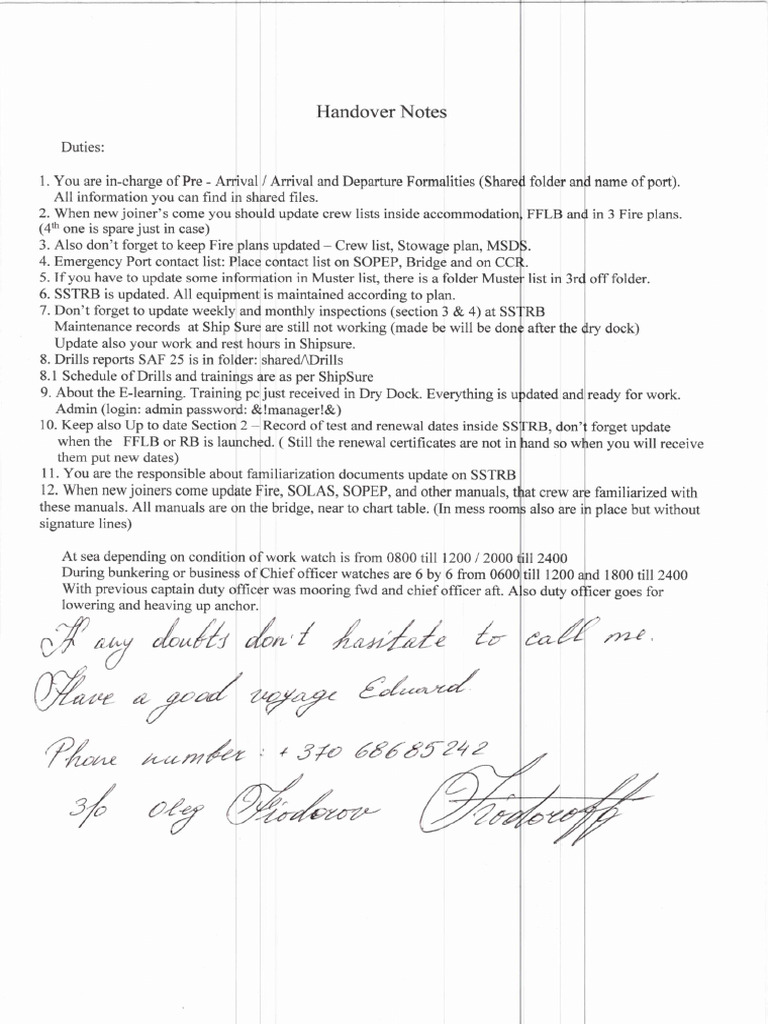 Handover Notes
Duties:
1. You are in-charge of Pre - Arrival / Arrival and Departure Formalities (Shared folder and name of port).
All information you can find in shared files.
2. When new joiner's come you should update crew lists inside accommodation, FFLB and in 3 Fire plans.
(4th one is spare just in case)
3. Also don't forget to keep Fire plans updated – Crew list, Stowage plan, MSDS.
4. Emergency Port contact list: Place contact list on SOPEP, Bridge and on CCR.
5. If you have to update some information in Muster list, there is a folder Muster list in 3rd off folder.
6. SSTRB is updated. All equipment is maintained according to plan.
7. Don't forget to update weekly and monthly inspections (section 3 & 4) at SSTRB
Maintenance records at Ship Sure are still not working (made be will be done after the dry dock)
Update also your work and rest hours in Shipsure.
8. Drills reports SAF 25 is in folder: shared/\Drills
8.1 Schedule of Drills and trainings are as per ShipSure
9. About the E-learning. Training pc just received in Dry Dock. Everything is updated and ready for work.
Admin (login: admin password: &!manager!&)
10. Keep also Up to date Section 2 – Record of test and renewal dates inside SSTRB, don't forget update
when the FFLB or RB is launched. ( Still the renewal certificates are not in hand so when you will receive
them put new dates)
11. You are the responsible about familiarization documents update on SSTRB
12. When new joiners come update Fire, SOLAS, SOPEP, and other manuals, that crew are familiarized with
these manuals. All manuals are on the bridge, near to chart table. (In mess rooms also are in place but without
signature lines)
At sea depending on condition of work watch is from 0800 till 1200 / 2000 till 2400
During bunkering or business of Chief officer watches are 6 by 6 from 0600 till 1200 and 1800 till 2400
With previous captain duty officer was mooring fwd and chief officer aft. Also duty officer goes for
lowering and heaving up anchor.
If any doubts don't hasitate to call me.
Have a good voyage Eduard.
Phone number: +370 68685242
3/o Oleg Fiodorov Fiodoroff